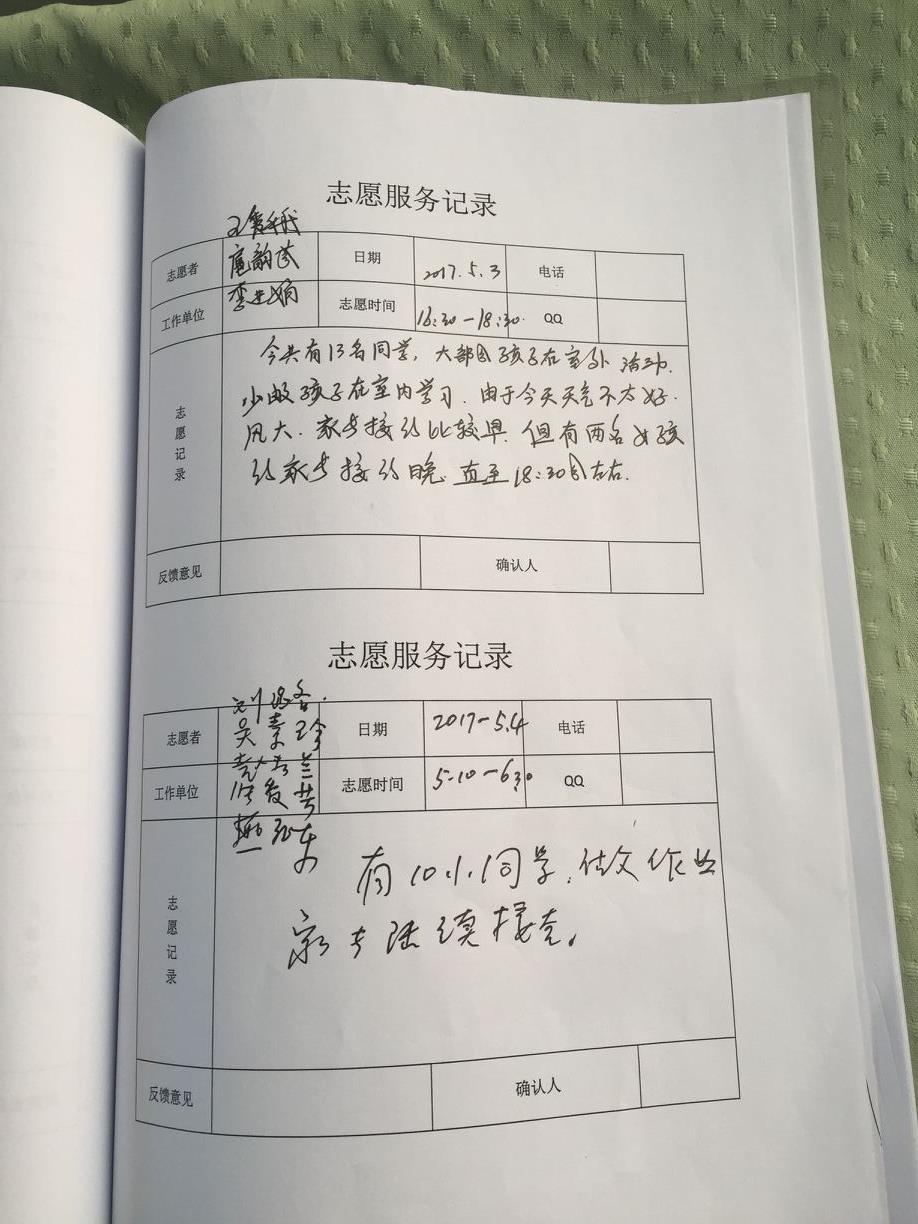 志愿服务记录
志愿者
日期
2017.5.3
电话
工作单位
志愿时间
16:30-18:30.
QQ
志愿记录
今共有13名同学，大部分孩子在室外活动.
少部孩子在室内学习.由于今天天气不太好.
风大.家长接的比较早.但有两名女孩
的家长接的晚.直至18:30分左右.
反馈意见
确认人
志愿服务记录
志愿者
吴素珍
日期
2017-5.4
电话
工作单位
志愿时间
5-10-6:30
QQ
志愿记录
有10小同学.做文作业
家长陆续接走。
反馈意见
确认人